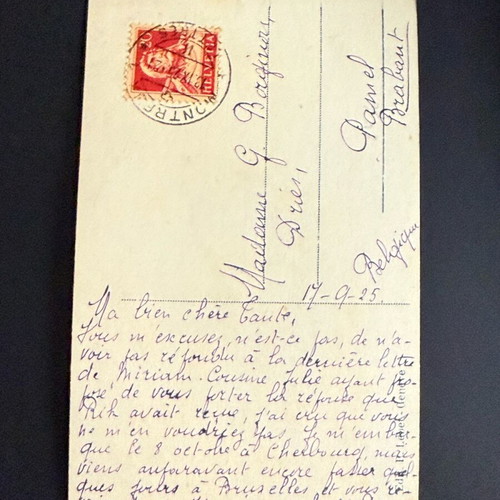 HELVETIA
MONTREUX
Madame G
Dries,
Pamel
Brabant
Belgique
17-9-25.
Ma bien chère Tante,
Vous m'excusez, n'est-ce pas, de n'a-
voir pas répondu à la dernière lettre
de Miriam. Cousine Julie ayant pro-
posé, de vous porter la réponse que
Rik avait reçue, j'ai cru que vous
ne m'en voudriez pas. Je m'embar-
que le 8 octobre à Cherbourg, mais
viens auparavant encore passer quel-
ques jours à Bruxelles et vous